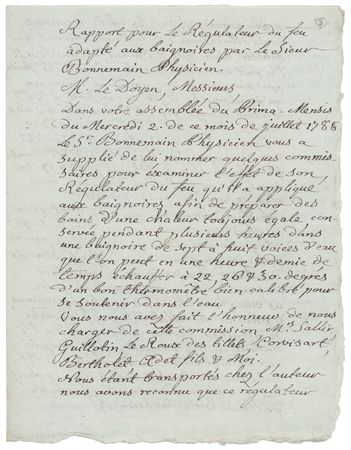 Rapport pour le Régulateur du feu
adapté aux baignoires par le Sieur
Bonnemain Physicien.
M. Le Doyen, Messieurs,
Dans votre assemblée du prima-Menses
du Mercredi 2. de ce mois de juillet 1786
Le Sr. Bonnemain Physicien vous a
supplié de lui nommer quelques commis-
saires pour examiner l'effet de son
Régulateur du feu qu'il a appliqué
aux baignoires afin de préparer des
bains d'une chaleur toujours égale con-
servée pendant plusieurs heures dans
une baignoire de sept à huit voies d'eau
que l'on peut en une heure & demie de
temps échaufer à 22, 26 & 30. degrés
d'un bon thermomètre bien calibré pour
se soutenir dans l'eau.
Vous nous avés fait l'honneur de nous
charger de cette commission Mrs
Guillotin Le Roux des tillets Corvisart
Bertholet Adet fils & Moi.
Nous étant transportés chez l'auteur
nous avons reconnu que ce régulateur